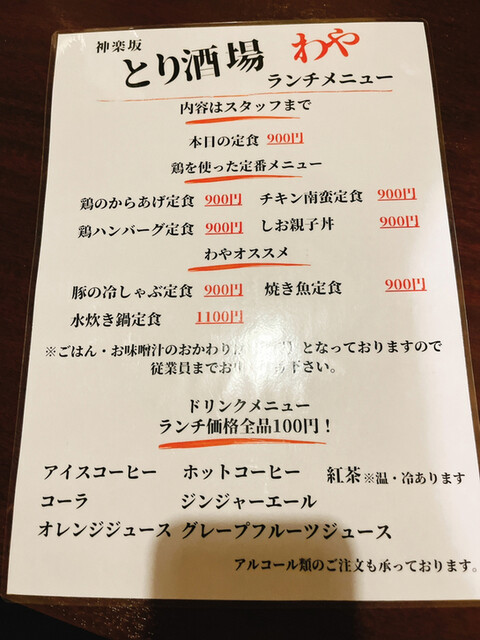 神楽坂
とり酒場 わや
ランチメニュー
内容はスタッフまで
本日の定食 900円
鶏を使った定番メニュー
鶏のからあげ定食 900円 チキン南蛮定食 900円
鶏ハンバーグ定食 900円 しお親子丼 900円
わやオススメ
豚の冷しゃぶ定食 900円 焼き魚定食 900円
水炊き鍋定食 1100円
※ごはん・お味噌汁のおかわりは となっておりますので
従業員までお さい。
ドリンクメニュー
ランチ価格全品100円!
アイスコーヒー ホットコーヒー 紅茶※温・冷あります
コーラ ジンジャーエール
オレンジジュース グレープフルーツジュース
アルコール類のご注文も承っております。